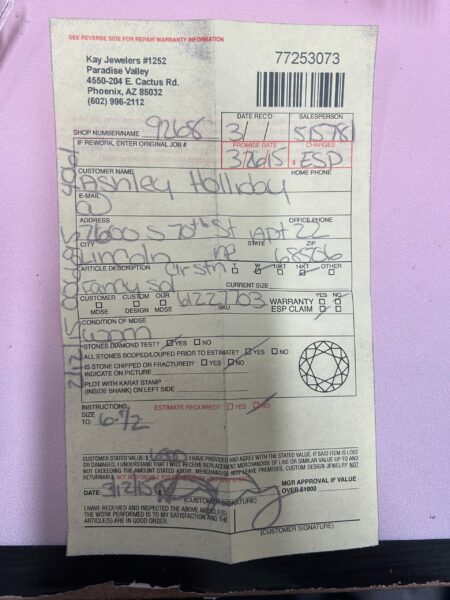 SEE REVERSE SIDE FOR REPAIR WARRANTY INFORMATION
Kay Jewelers #1252
Paradise Valley
4550-204 E. Cactus Rd.
Phoenix, AZ 85032
(602) 996-2112
77253073
SHOP NUMBER/NAME 9268
DATE REC'D 3/ /
SALESPERSON 515781
IF REWORK, ENTER ORIGINAL JOB #
PROMISE DATE 3/26/15
CHARGES ESP
CUSTOMER NAME Ashley Holliday
HOME PHONE
E-MAIL
ADDRESS 7600 S 70th St Apt 22
OFFICE PHONE
CITY Lincoln
STATE ne
ZIP 68506
ARTICLE DESCRIPTION Clr Stn
Y W 10KT 14KT OTHER
Fanny Sol
CURRENT SIZE
CUSTOMER MDSE CUSTOM DESIGN OUR MDSE
SKU
WARRANTY YES NO
ESP CLAIM
CONDITION OF MDSE
worn
STONES DIAMOND TEST? YES NO
ALL STONES SCOPED/LOUPED PRIOR TO ESTIMATE? YES NO
IS STONE CHIPPED OR FRACTURED? YES NO
INDICATE ON PICTURE
PLOT WITH KARAT STAMP
(INSIDE SHANK) ON LEFT SIDE
INSTRUCTIONS:
ESTIMATE REQUIRED? YES NO
SIZE
TO: 6 1/2
CUSTOMER STATED VALUE $ I HAVE PROVIDED AND AGREE WITH THE STATED VALUE. IF SAID ITEM IS LOST
OR DAMAGED, I UNDERSTAND THAT I WILL RECEIVE REPLACEMENT MERCHANDISE OF LIKE OR SIMILAR VALUE UP TO AND
NOT EXCEEDING THE AMOUNT STATED ABOVE.
DATE: 3/12/15
(CUSTOMER SIGNATURE)
MGR APPROVAL IF VALUE
OVER $1000
I HAVE RECEIVED AND INSPECTED THE ABOVE ARTICLE(S).
THE WORK PERFORMED IS TO MY SATISFACTION AND THE
ARTICLE(S) ARE IN GOOD ORDER.
(CUSTOMER SIGNATURE)